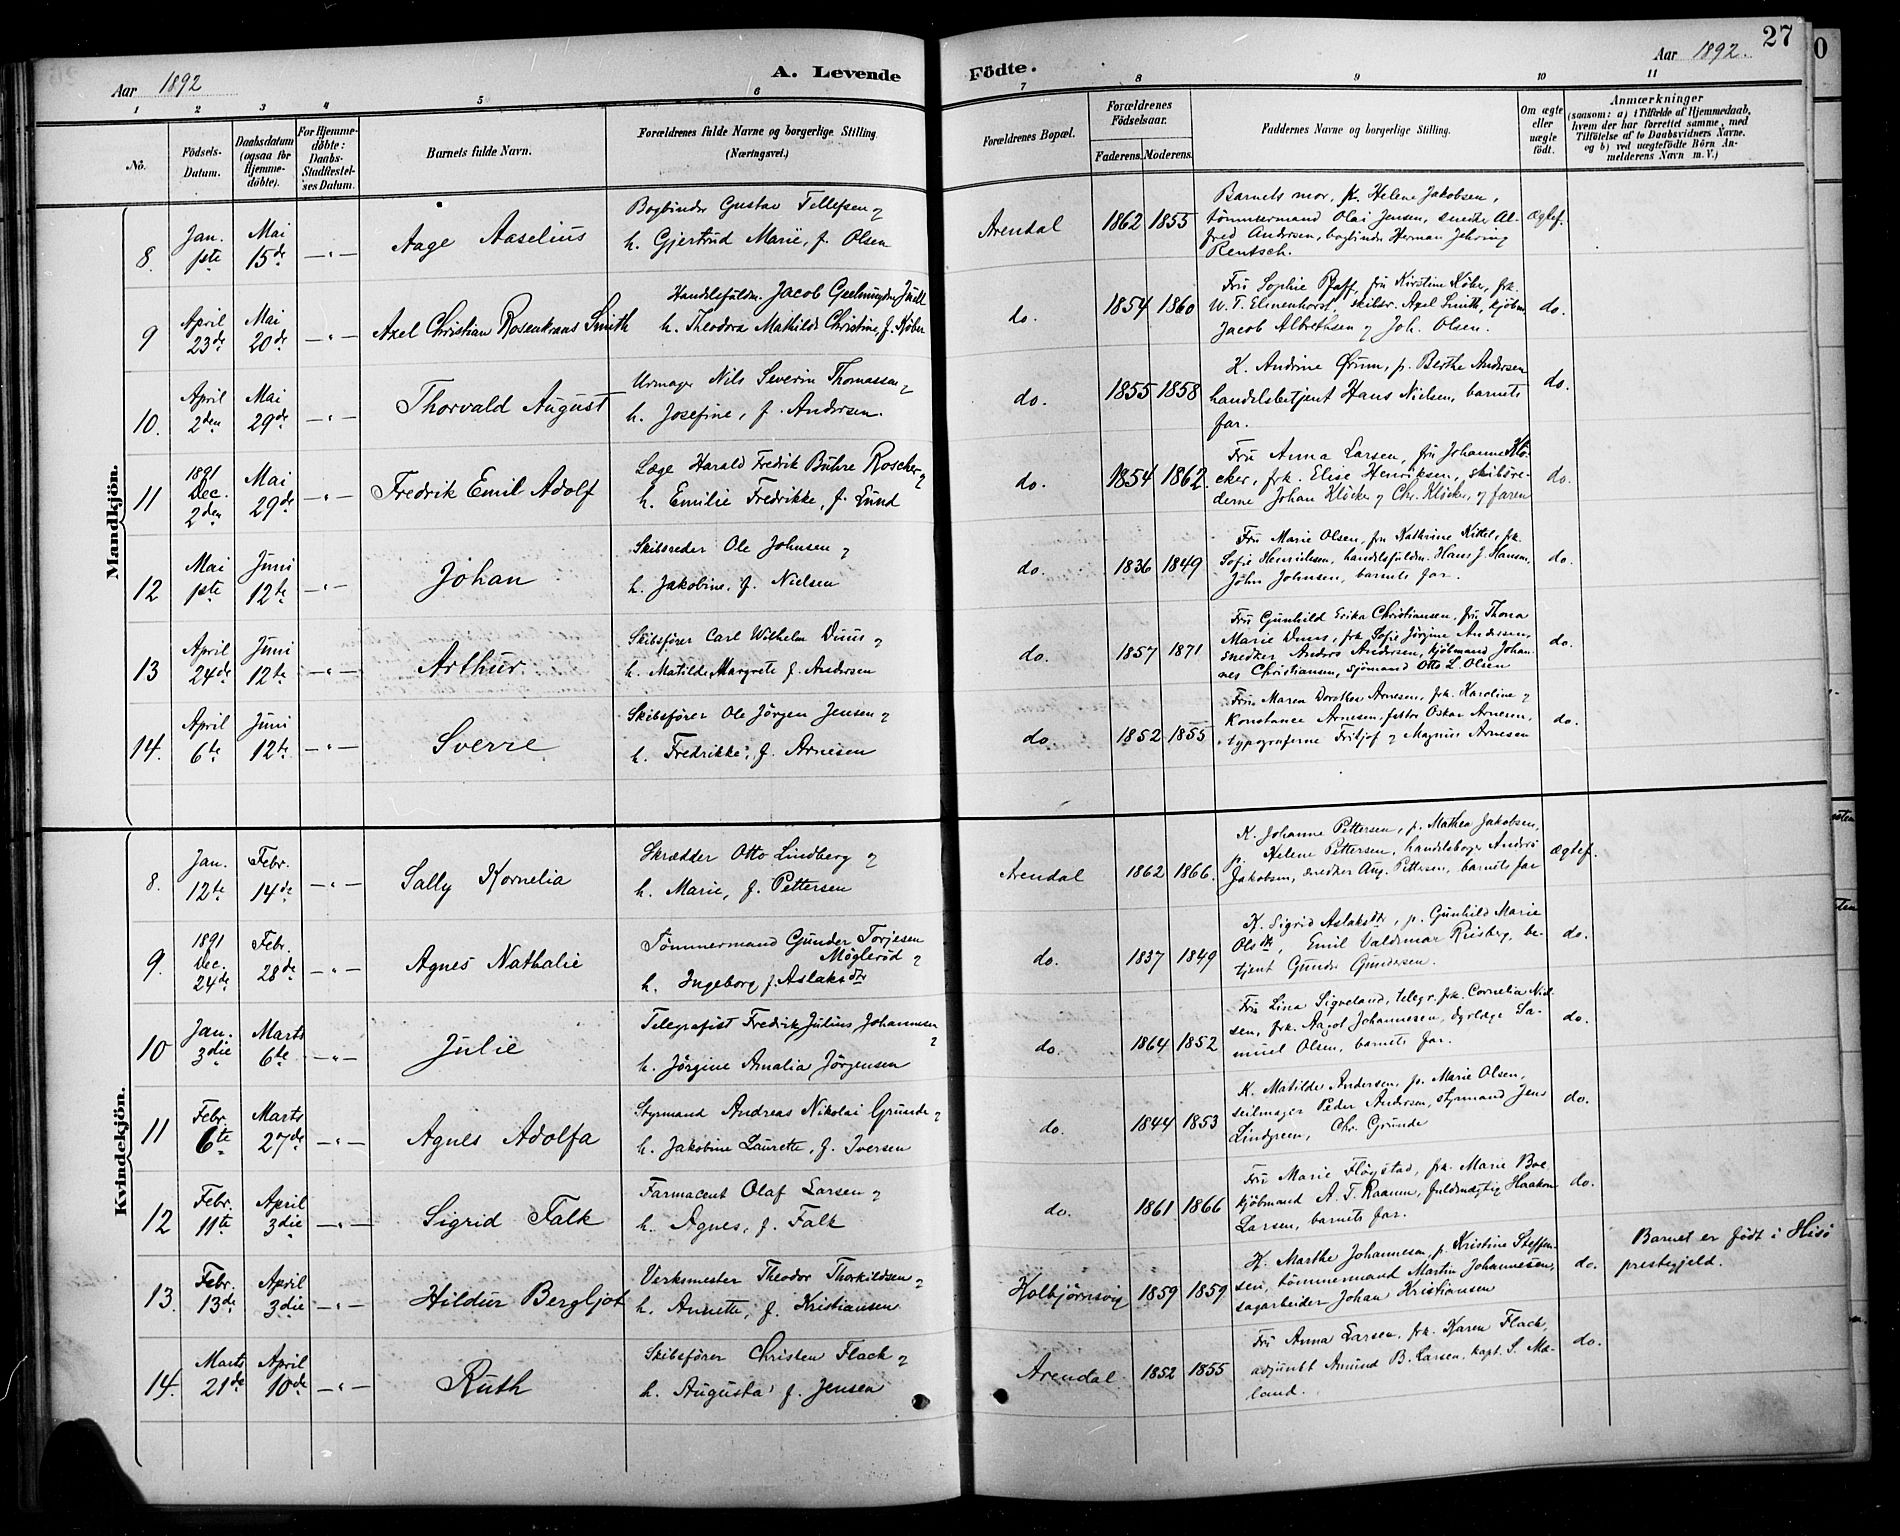 Aar 1892
A. Levende
1 2 3 4 5 6
No.
Fødsels-Datum.
Daabsdatum (ogsaa for Hjemme-døbte).
For Hjemme-døbte: Daabs-Stadfæstel-ses Datum.
Barnets fulde Navn.
Forældrenes fulde Navne og borgerlige Stilling. (Næringsvei.)
Mandkjön.
8. Jan. 1ste Mai 15de —"— Aage Aaselius Bogbinder Gustav Tellefsen og
h. Gjertrud Marie, f. Olsen
9 April 23de Mai 20de —"— Axel Christian Rosenkrans Smith Handelsfuldm. Jacob Geelmuyden Juell
h. Theodora Mathilde Christine, f. Køber
10. April 2den Mai 29de —"— Thorvald August Urmager Nils Severin Thomassen og
h. Josefine, f. Andersen.
11 1891 Dec. 2den Mai 29de —"— Fredrik Emil Adolf Læge Harald Fredrik Buhre Roscher og
h. Emilie Fredrikke, f. Lund
12 Mai 1ste Juni 12te —"— Johan Skibsreder Ole Johnsen og
h. Jakobine, f. Nielsen
13 April 24de Juni 12te —"— Arthur Skibsfører Carl Wilhelm Duus og
h. Matilde Margrete f. Andersen
14. April 6te Juni 12te —"— Sverre Skibsfører Ole Jörgen Jensen og
h. Fredrikke, f. Arnesen
Kvindekjön.
8. Jan. 12te Febr. 14de —"— Sally Kornelia Skrædder Otto Lindberg og
h. Marie, f. Pettersen
9. 1891 Dec. 24de Febr. 28de —"— Agnes Nathalie Tømmermand Gunder Torjesen
Møglerød og
h. Ingeborg f. Aslaksdtr
10 Jan. 3die Marts 6te —"— Julie Telegrafist Fredrik Julius Johannesen og
h. Jørgine Amalia Jørgensen
11 Febr. 6te Marts 27de —"— Agnes Adolfa Styrmand Andreas Nikolai Grunde og
h. Jakobine Laurette, f. Iversen
12 Febr. 11te April 3die —"— Sigrid Falk Farmaceut Olaf Larsen og
h. Agnes, f. Falk
13. Febr. 13de April 3die —"— Hildur Bergljot Verksmester Theodor Thorkildsen og
h. Annette, f. Kristiansen
14. Marts 21de April 10de —"— Ruth Skibsfører Christen Flack og
h. Augusta f. Jensen
Födte.
Aar 1892. 27
7 8 9 10 11
Forældrenes Bopæl.
Forældrenes Födselsaar.
Faderens. Moderens.
Faddernes Navne og borgerlige Stilling.
Om ægte eller uægte født.
Anmærkninger
(saasom: a) i Tilfælde af Hjemmedaab, hvem der har forrettet samme, med Tilföielse af to Daabsvidners Navne. og b) ved uægtefödte Börn Anmelderens Navn m. V.)
Arendal 1862 1855 Barnets mor, fk. Helene Jakobsen,
tømmermand Olai Jensen, snedker Al-
fred Andersen, bogbinder Herman Jehring
Rentsch. Ægtef.
do. 1854 1860 Fru Sophie Pfaff, fru Kirstine Køber, frk.
W. T. Elmenhorst, skibsr. Axel Smith, kjøbm
Jacob Albrethsen og Joh. Olsen. do.
do. 1855 1858 K. Andrine Ørum, p. Berthe Andersen
handelsbetjent Hans Nielsen, barnets
far. do.
do. 1854 1862. Fru Anna Larsen, fru Johanne Klø-
cker, frk. Elise Henriksen, skibsre-
derne Johan Kløcker og Chr. Kløcker, og faren do.
do. 1836 1849 Fru Marie Olsen, fru Kathrine Kittel, frk.
Sofie Henriksen, handelsfuldm. Hans J. Hansen,
John Johnsen, barnets far. do.
do. 1857 1871 Fru Gunhild Erika Christiansen, fru Thora
Marie Duus, frk Sofie Jørgine Andersen,
snedker Anders Andersen, kjøbmand Johan-
nes Christiansen, sjømand Otto L. Olsen do.
do. 1852 1855 Fru Maren Dorothea Arnesen, frk. Karoline og
Konstance Arnesen, Oskar Arnesen,
typograferne Fritjof og Magnus Arnesen do.
Arendal 1862 1866. K. Johanne Pettersen, p. Mathea Jakobsen,
p. Helene Pettersen, handelsborger Anders
Jakobsen, snedker Aug. Pettersen, barnets far Ægtef.
do. 1837 1849 K. Sigrid Aslaksdtr, p. Gunhild Marie
Olsdtr, Emil Valdemar Riisberg, be-
tjent Gunder Gundersen. do.
do. 1864 1852 Fru Lina Sigveland, telegr. frk. Cornelia Niel-
sen, frk. Aagot Johannesen, dyrlæge Sa-
muel Olsen, barnets far. do.
do. 1844 1853 K. Matilde Andersen, p. Marie Olsen,
seilmager Peder Andersen, styrmand Jens
Lindgreen, Chr. Grunde do.
do. 1861 1866 Fru Marie Fløystad, frk. Marie Boe
kjøbmand A. T. Raanum, fuldmægtig Haakon
Larsen, barnets far. do.
Kolbjørnsvig 1859 1859 K. Marthe Johannesen, p. Kristine Steffen-
sen, tømmermand Martin Johannesen,
sagarbeider Johan Kristiansen do. Barnet er født i Hisø
prestegjeld.
Arendal 1852 1855 Fru Anna Larsen, frk. Karen Flack,
adjunkt Amund B. Larsen, kapt. S. Mø-
land. do.